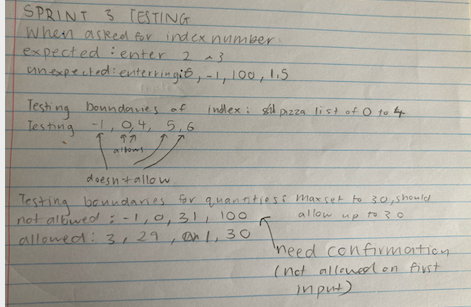 SPRINT 3 TESTING
When asked for index number
expected: enter 2 3
unexpected: enterring 6, -1, 100, 1.5
Testing boundaries of index: pizza list of 0 to 4
Testing -1, 0, 4, 5, 6
allows
doesnt allow
Testing boundaries for quantities: max set to 30, should
not allowed: -1, 0, 31, 100 allow up to 30
allowed: 3, 29, 1, 30
need confirmation
(not allowed on first
input)